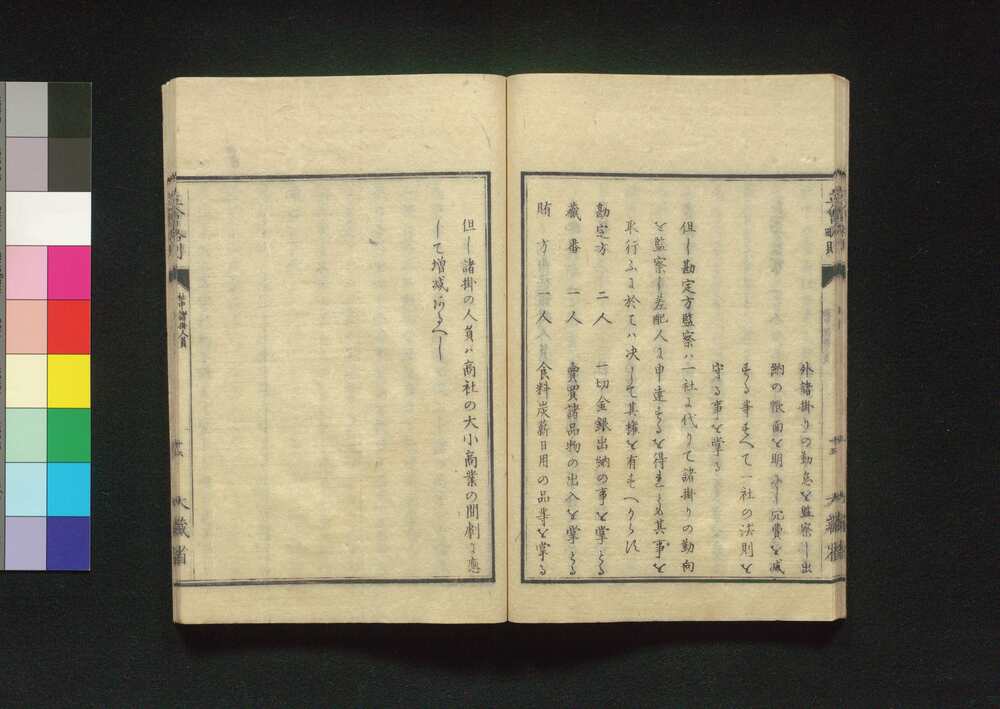 外諸掛りの勤怠を監察し出
納の帳面を明にし冗費を減
する事すへて一社の法則を
守る事を掌る
但し勘定方監察ハ一社に代りて諸掛りの勤向
を監察し差配人に申達するを得ると雖も其事を
取行ふに於てハ决して其権を有すへからす
勘定方 二人 一切金銀出納の事を掌とる
蔵番 一人 賣買諸品物の出入を掌とる
賄方 一人 食料炭薪日用の品等を掌る
但し諸掛の人員ハ商社の大小商業の閒劇に應
して増减あるへし
立會略則
社中諸掛人員
大藏省